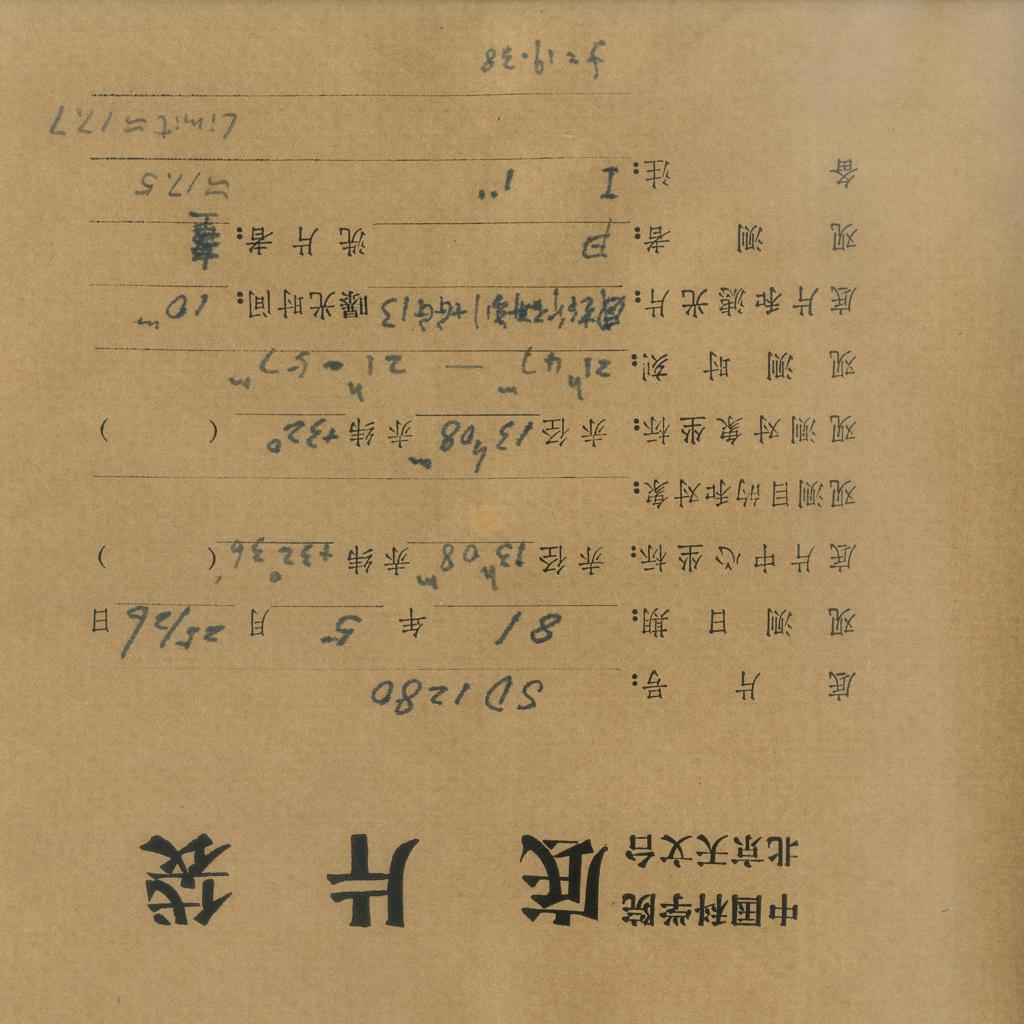 中国科学院
北京天文台
底片袋
底片号： SD1280
观测日期： 81 年 5 月 25/26 日
底片中心坐标： 赤径 13h08m 赤纬 +32°36′ ( )
观测目的和对象：
观测对象坐标： 赤径 13h08m 赤纬 +32° ( )
观测时刻： 21h47m — 21h57m
底片和滤光片： +GG13 曝光时间： 10m
观测者： 洗片者：
备注： I 1" =17.5
Limit=17.7
f=19.38